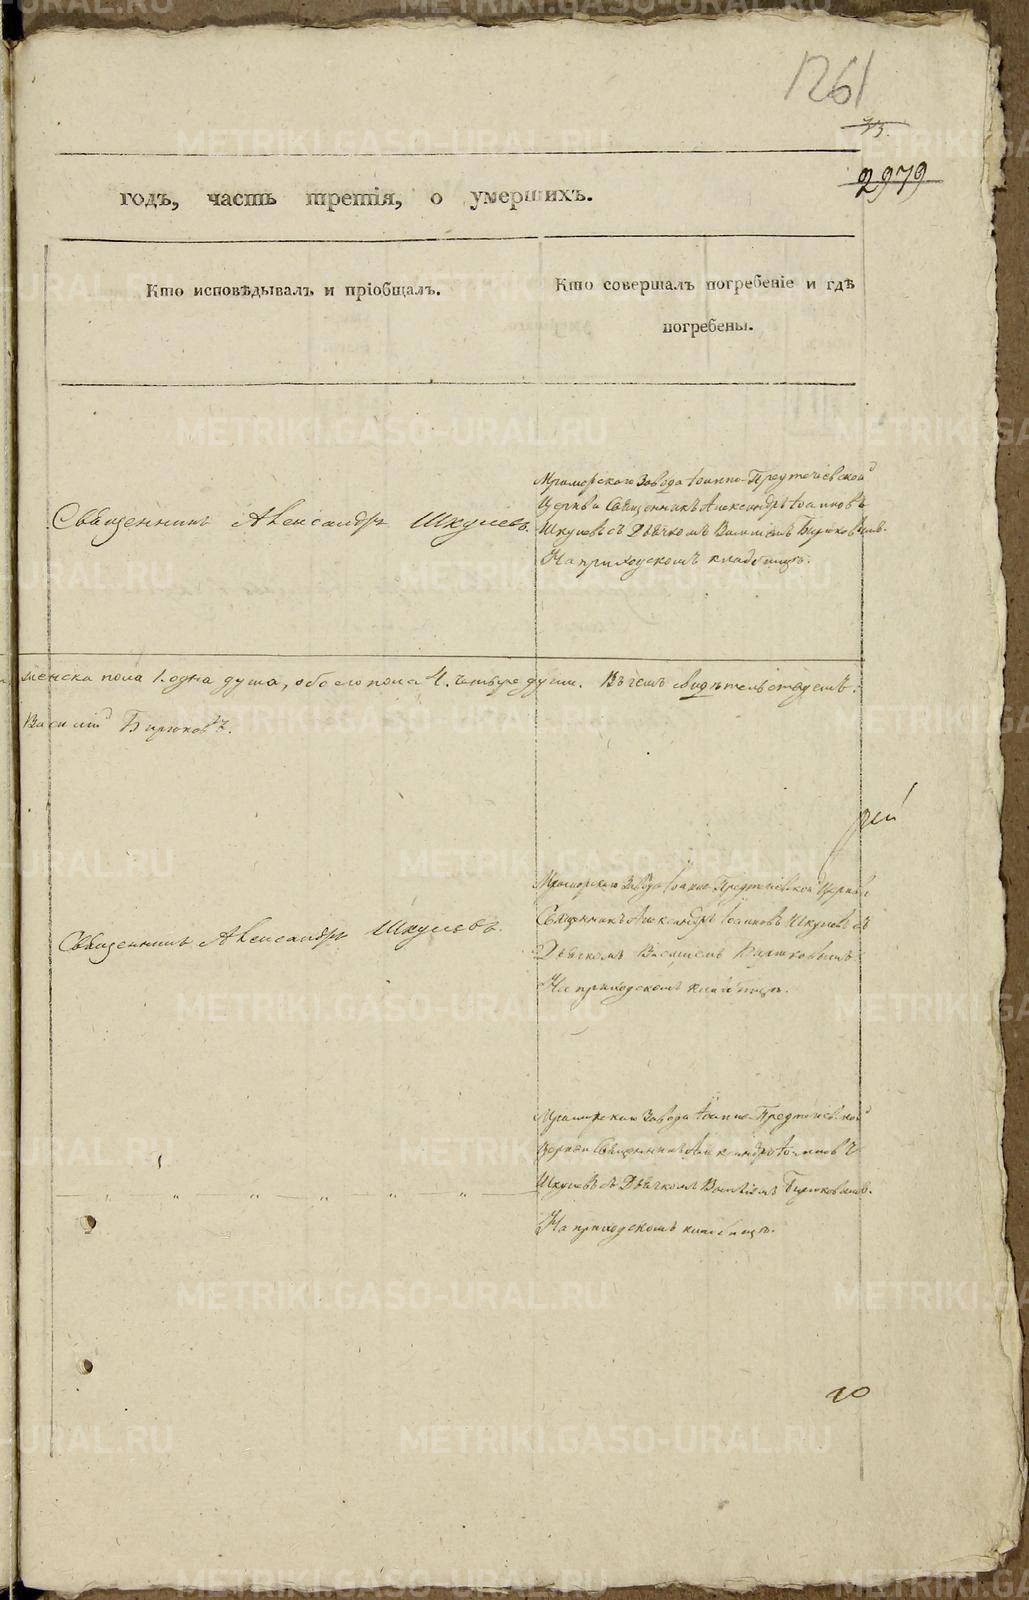 1261
33.
2979
годъ, часть третія, о умершихъ.
Кто исповѣдывалъ и пріобщалъ.
Кто совершалъ погребеніе и гдѣ
погребены.
Священникъ Александръ Шкулевъ.
Мраморскаго Завода Іоанно-Предтечіевской
Церкви Священникъ Александръ Іоанновъ
Шкулевъ съ Дьячкомъ Василіемъ Бирюковымъ.
На приходскомъ кладбищѣ.
женска пола 1. одна душа, обоего пола 4. четыре души. Въ чемъ свидѣтельствуемъ:
Василій Бирюковъ.
рей
Мраморскаго Завода Іоанно-Предтечіевской Церкви
Священникъ Александръ Іоанновъ Шкулевъ съ
Дьячкомъ Василіемъ Бирюковымъ
На приходскомъ кладбищѣ.
Священникъ Александръ Шкулевъ.
Мраморскаго Завода Іоанно-Предтечіевской
Церкви Священникъ Александръ Іоанновъ
Шкулевъ съ Дьячкомъ Василіемъ Бирюковымъ.
На приходскомъ кладбищѣ.
10
METRIKI.GASO-URAL.RU